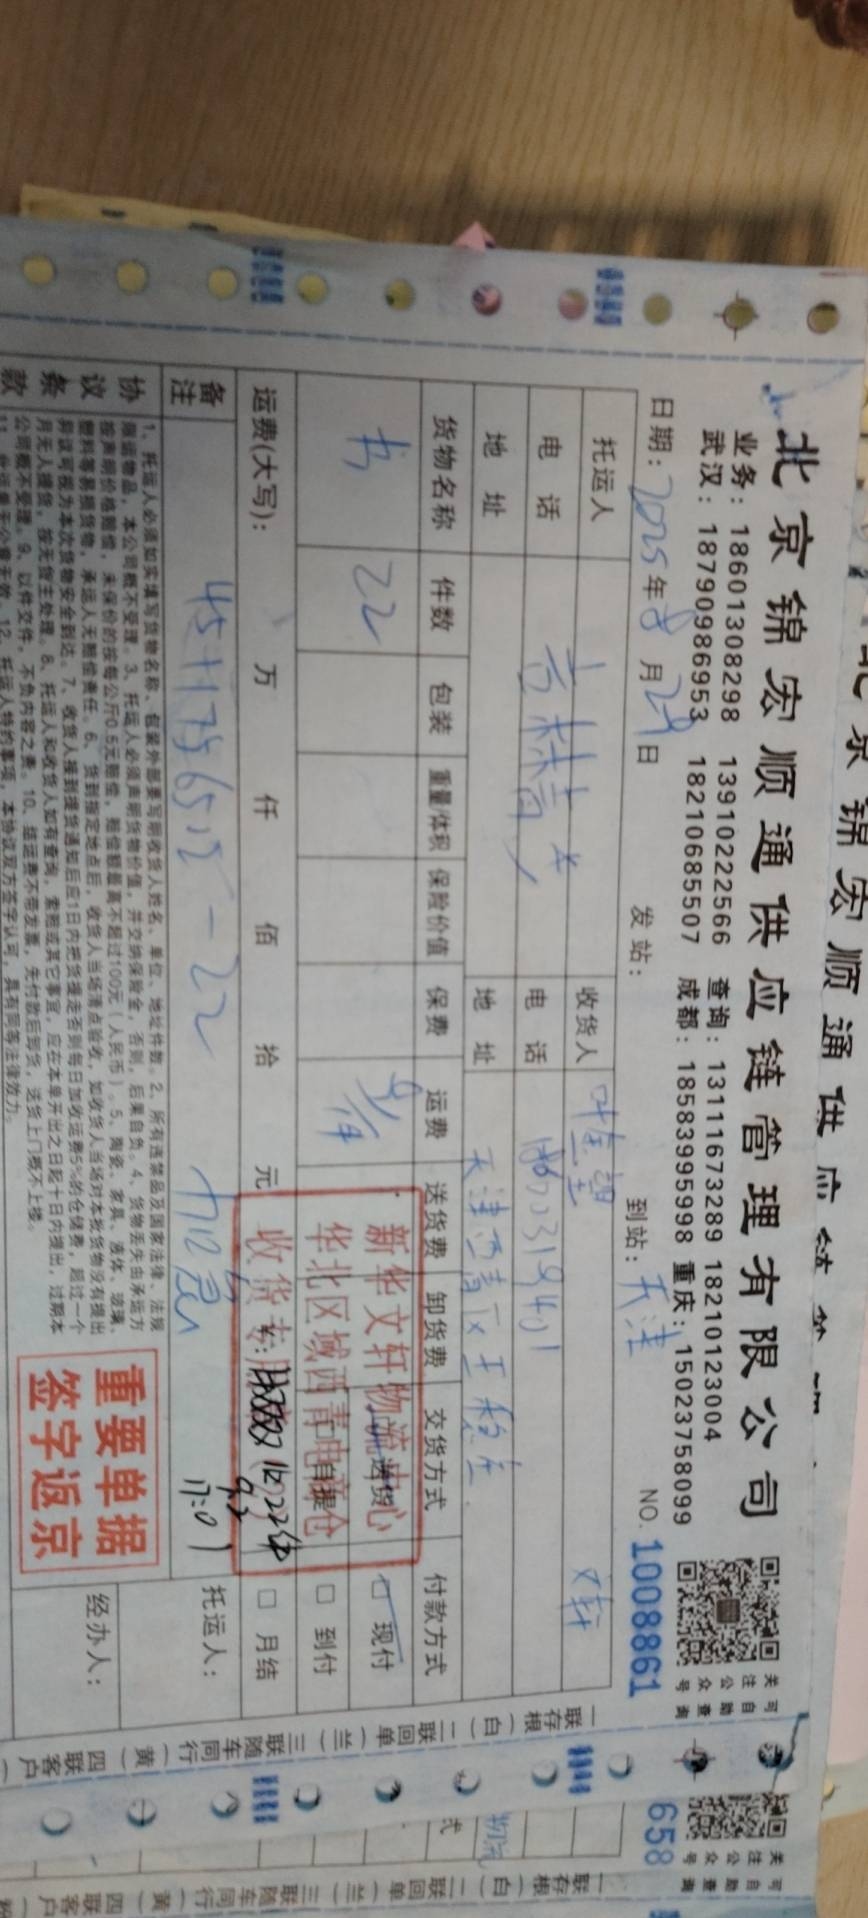 北京锦宏顺通供应链管理有限公司
业务：18601308298 13910222566 查询：13111673289 18210123004
武汉：18790986953 18210685507 成都：18583995998 重庆：15023758099
关注公众号
可自助查询
日期：2025年8月29日 发站： 到站：天津 NO.1008861
托运人 收货人 文轩
电话 电话
地址 地址 天津西青区王稳庄
货物名称 件数 包装 重量/体积 保险价值 保费 运费 送货费 卸货费 交货方式 付款方式
书 22 送货 □ 现付
自提 □ 到付
运费(大写)： 万 仟 佰 拾 元 □ 月结
新华文轩物流中心
华北区域西青电商仓
收货专用章
收22件
9.2
17:01
备注
托运人：
协议条款
1、托运人必须如实填写货物名称、包装外部要写明收货人姓名、单位、地址件数。2、所有违禁品及国家法律、法规
限运物品，本公司概不受理。3、托运人必须声明货物价值，并交纳保险金，否则，后果自负。4、货物丢失由承运方
按声明价格赔偿，未保价的按每公斤0.5元赔偿，赔偿额最高不超过100元（人民币）。5、陶瓷、家具、液体、玻璃、
塑料等易损货物，承运人无赔偿责任。6、货到指定地点后，收货人当场清点验收，如收货人当场对本批货物没有提出
异议可视为本次货物安全到达。7、收货人接到提货通知后应1日内把货提走否则每日加收运费5%的仓储费，超过一个
月无人提货，按无货主处理。8、托运人和收货人如有查询，索赔或其它事宜，应在本单开出之日起十日内提出，过期本
公司概不受理。9、以件交件，不负内容之责。10、结运费不带发票，先付款后卸货，送货上门概不上楼。
重要单据
签字返京
经办人：
一联存根（白） 二联回单（兰） 三联随车同行（黄） 四联客户
658
关注公众号
可自助查
一联存根（白） 二联回单（兰） 三联随车同行（黄） 四联客户